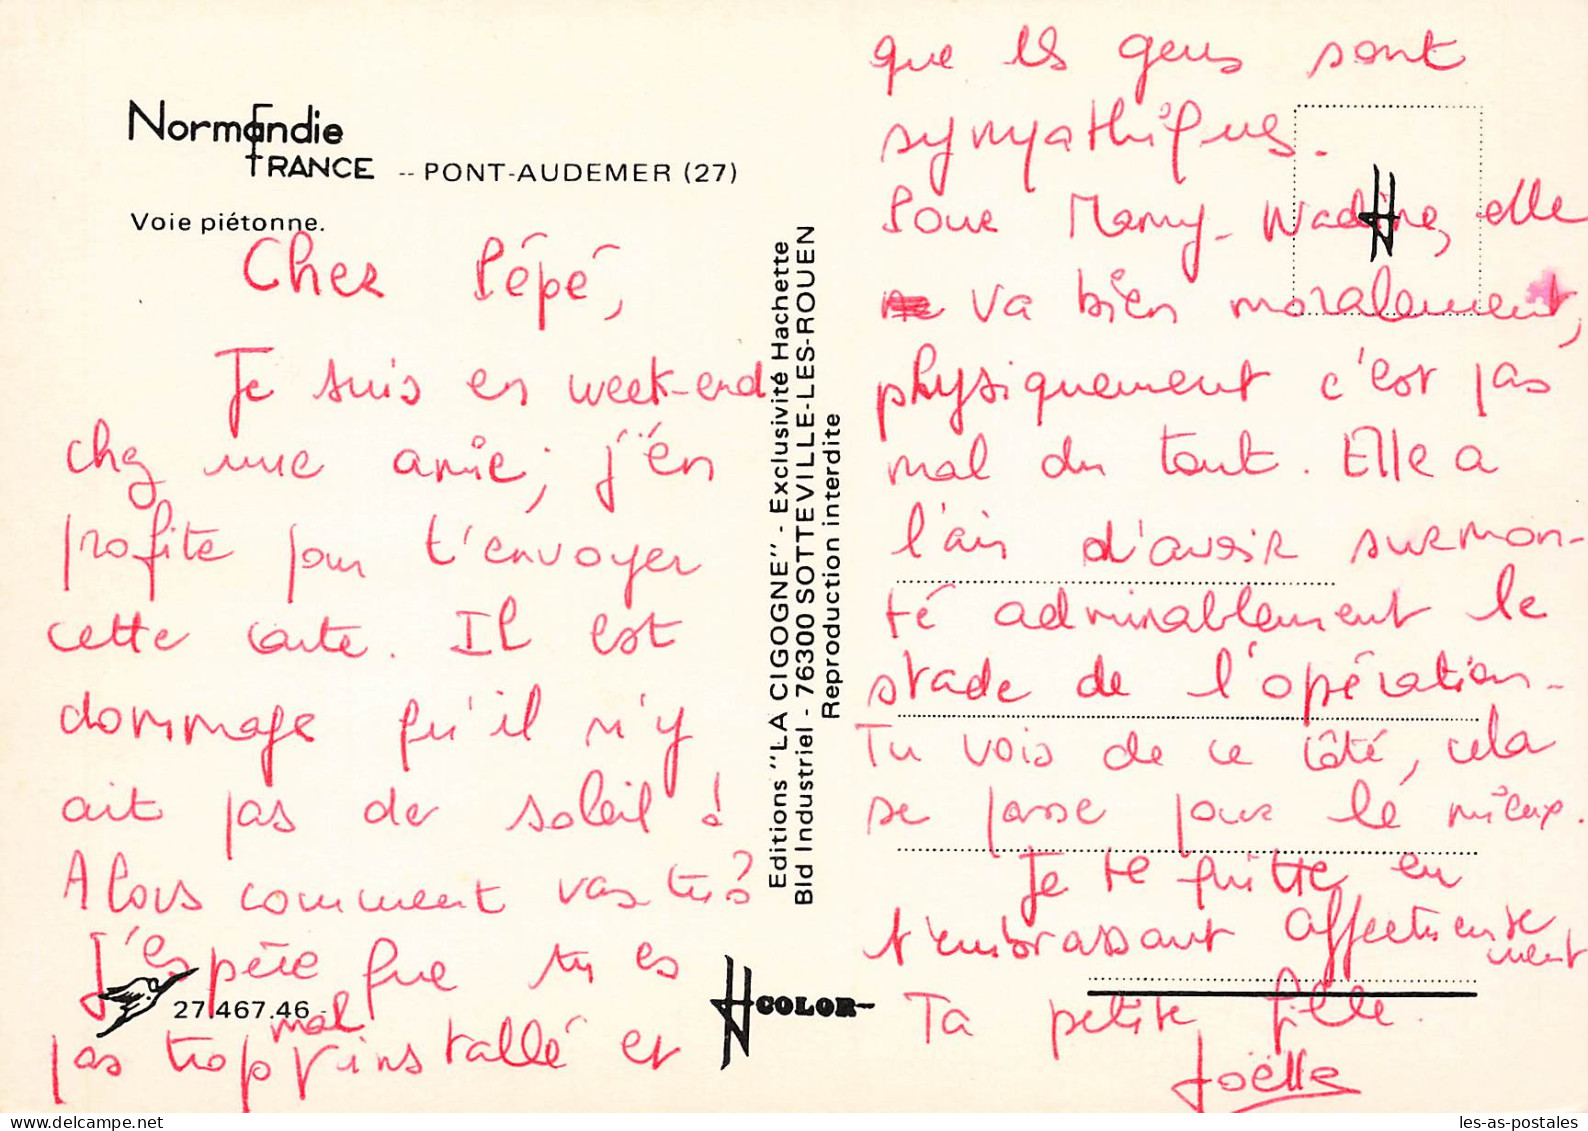 Normandie
FRANCE -- PONT-AUDEMER (27)
Voie piétonne.
Cher Pépé,
Je suis en week-end
chez une amie, j'en
profite pour t'envoyer
cette carte. Il est
dommage qu'il n'y
ait pas de soleil !
Alors comment vas-tu ?
J'espère que tu es
27 467.46 -
mal
pas trop installé et
Editions "LA CIGOGNE" - Exclusivité Hachette
Bld Industriel - 76300 SOTTEVILLE-LES-ROUEN
Reproduction interdite
COLOR
que les gens sont
sympathiques.
Pour Mamy-Nadine, elle
va bien moralement,
physiquement c'est pas
mal du tout. Elle a
l'air d'avoir surmon-
té admirablement le
stade de l'opération.
Tu vois de ce côté, cela
se passe pour le mieux.
Je te quitte en
t'embrassant affectueuse
ment
Ta petite fille.
Joëlle
les-as-postales